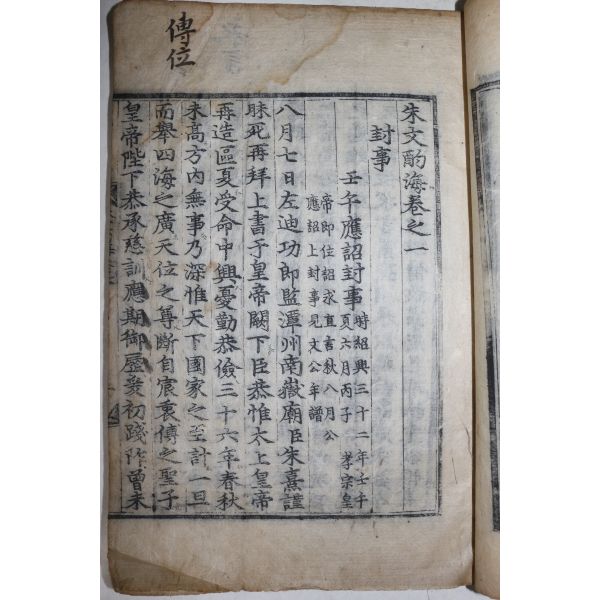 朱文酌海卷之一
封事
壬午應詔封事 時紹興三十二年壬午
夏六月丙子 孝宗皇
帝即位詔求直言秋八月公
應詔上封事見文公年譜
八月七日左迪功郎監潭州南嶽廟臣朱熹謹
昧死再拜上書于皇帝闕下臣恭惟太上皇帝
再造區夏受命中興憂勤恭儉三十六年春秋
未高方內無事乃深惟天下國家之至計一旦
而舉四海之廣天位之尊斷自宸衷傳之聖子
皇帝陛下恭承慈訓應期御歷爰初踐阼曾未
傳位